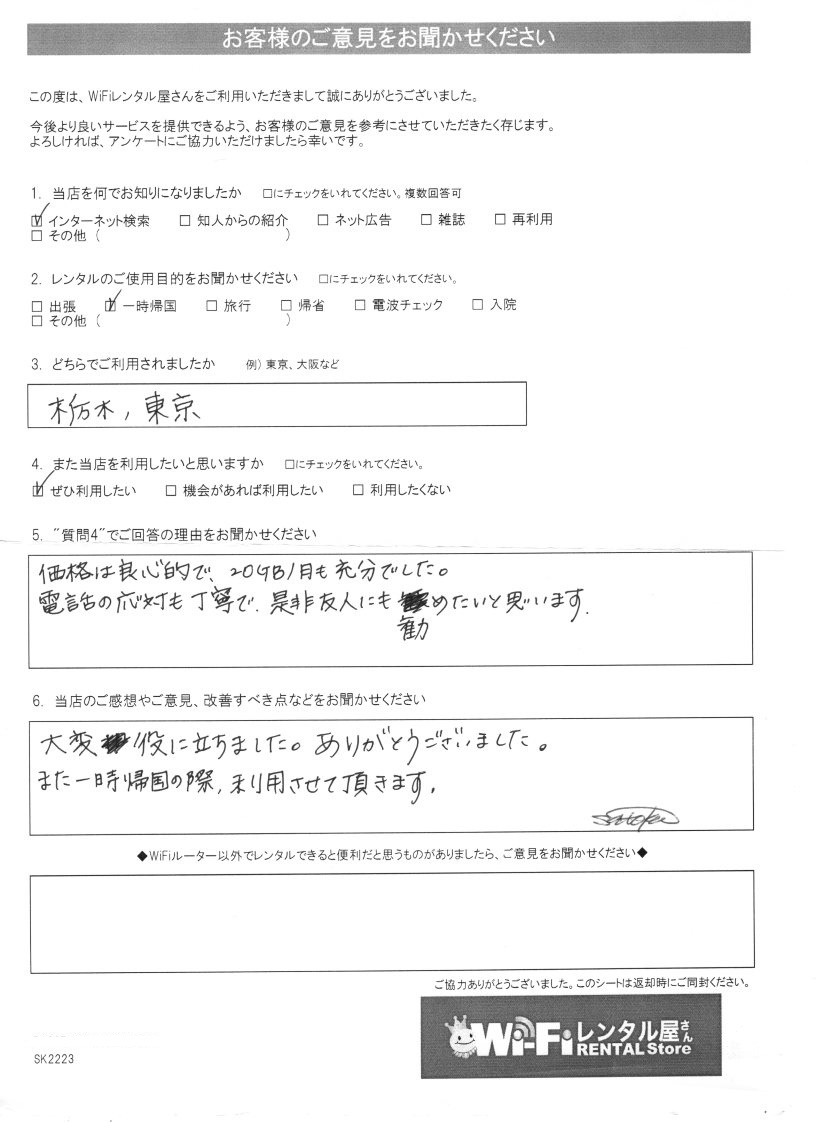 お客様のご意見をお聞かせください
この度は、WiFiレンタル屋さんをご利用いただきまして誠にありがとうございました。
今後より良いサービスを提供できるよう、お客様のご意見を参考にさせていただきたく存じます。
よろしければ、アンケートにご協力いただけましたら幸いです。
1. 当店を何でお知りになりましたか □にチェックをいれてください。複数回答可
☑ インターネット検索 □ 知人からの紹介 □ ネット広告 □ 雑誌 □ 再利用
□ その他 ( )
2. レンタルのご使用目的をお聞かせください □にチェックをいれてください。
□ 出張 ☑ 一時帰国 □ 旅行 □ 帰省 □ 電波チェック □ 入院
□ その他 ( )
3. どちらでご利用されましたか 例) 東京、大阪など
栃木, 東京
4. また当店を利用したいと思いますか □にチェックをいれてください。
☑ ぜひ利用したい □ 機会があれば利用したい □ 利用したくない
5. "質問4"でご回答の理由をお聞かせください
価格は良心的で、20GB/月も充分でした。
電話の応対も丁寧で、是非友人にも勧めたいと思います.
6. 当店のご感想やご意見、改善すべき点などをお聞かせください
大変役に立ちました。ありがとうございました。
また一時帰国の際, 利用させて頂きます.
◆WiFiルーター以外でレンタルできると便利だと思うものがありましたら、ご意見をお聞かせください◆
ご協力ありがとうございました。このシートは返却時にご同封ください。
Wi-Fiレンタル屋さん
RENTAL Store
SK2223